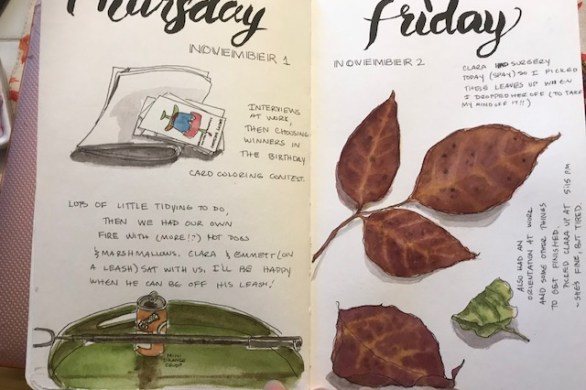 Thursday
NOVEMBER 1
INTERVIEWS
AT WORK,
THEN CHOOSING
WINNERS IN
THE BIRTHDAY
CARD COLORING CONTEST.
LOTS OF LITTLE TIDYING TO DO,
THEN WE HAD OUR OWN
FIRE WITH (MORE!!) HOT DOGS
& MARSHMALLOWS. CLARA & EMMETT (ON
A LEASH) SAT WITH US. I'LL BE HAPPY
WHEN HE CAN BE OFF HIS LEASH!
MINI
Friday
NOVEMBER 2
CLARA HAD SURGERY
TODAY (SPAY) SO I PICKED
THESE LEAVES UP WHEN
I DROPPED HER OFF (TO TAKE
MY MIND OFF IT!!)
ALSO HAD AN
ORIENTATION AT WORK
AND SOME OTHER THINGS
TO GET FINISHED.
PICKED CLARA UP AT 5:15 PM
- SHE'S FINE, BUT TIRED.